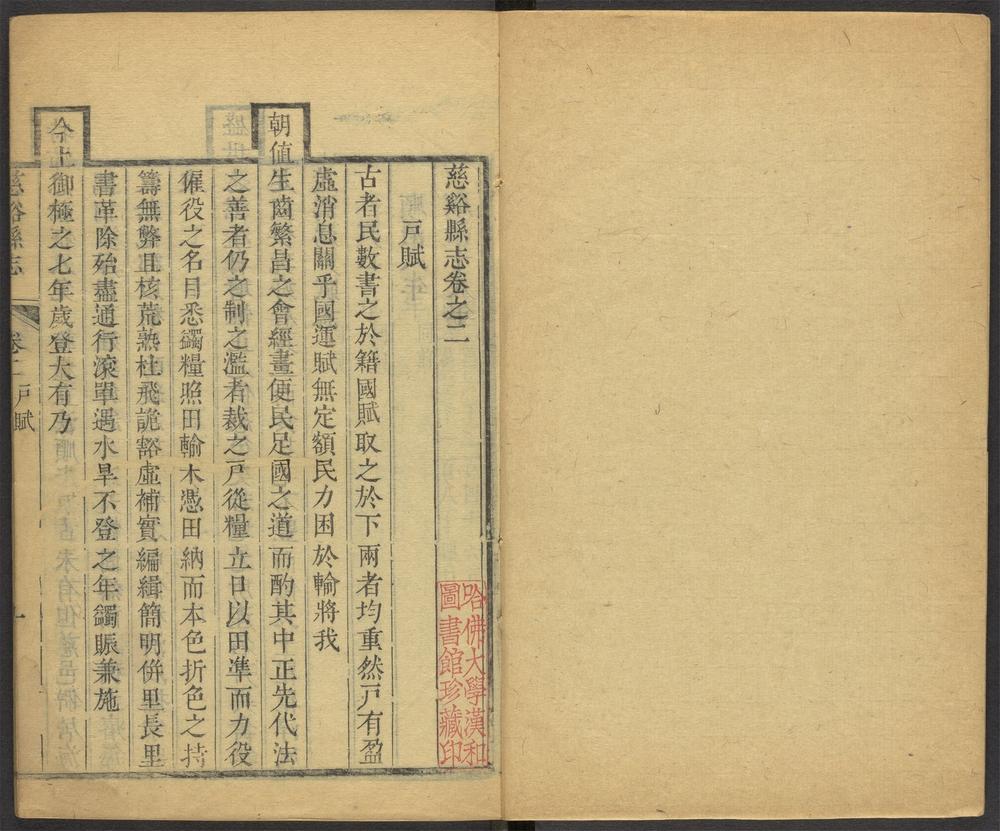 慈谿縣志卷之二
戶賦
古者民數書之於籍國賦取之於下兩者均重然戶有盈
虛消息關乎國運賦無定額民力困於輸將我
朝值生齒繁昌之會經畫便民足國之道而酌其中正先代法
之善者仍之制之濫者裁之戶從糧立日以田準而力役
僱役之名目悉蠲糧照田輸木憑田納而本色折色之持
籌無弊且核荒熟杜飛詭豁虛補實編緝簡明倂里長里
書革除殆盡通行滾單遇水旱不登之年蠲賑兼施
今上御極之七年歲登大有乃
慈谿縣志 卷二 戶賦 一
哈佛大學漢和
圖書館珍藏印